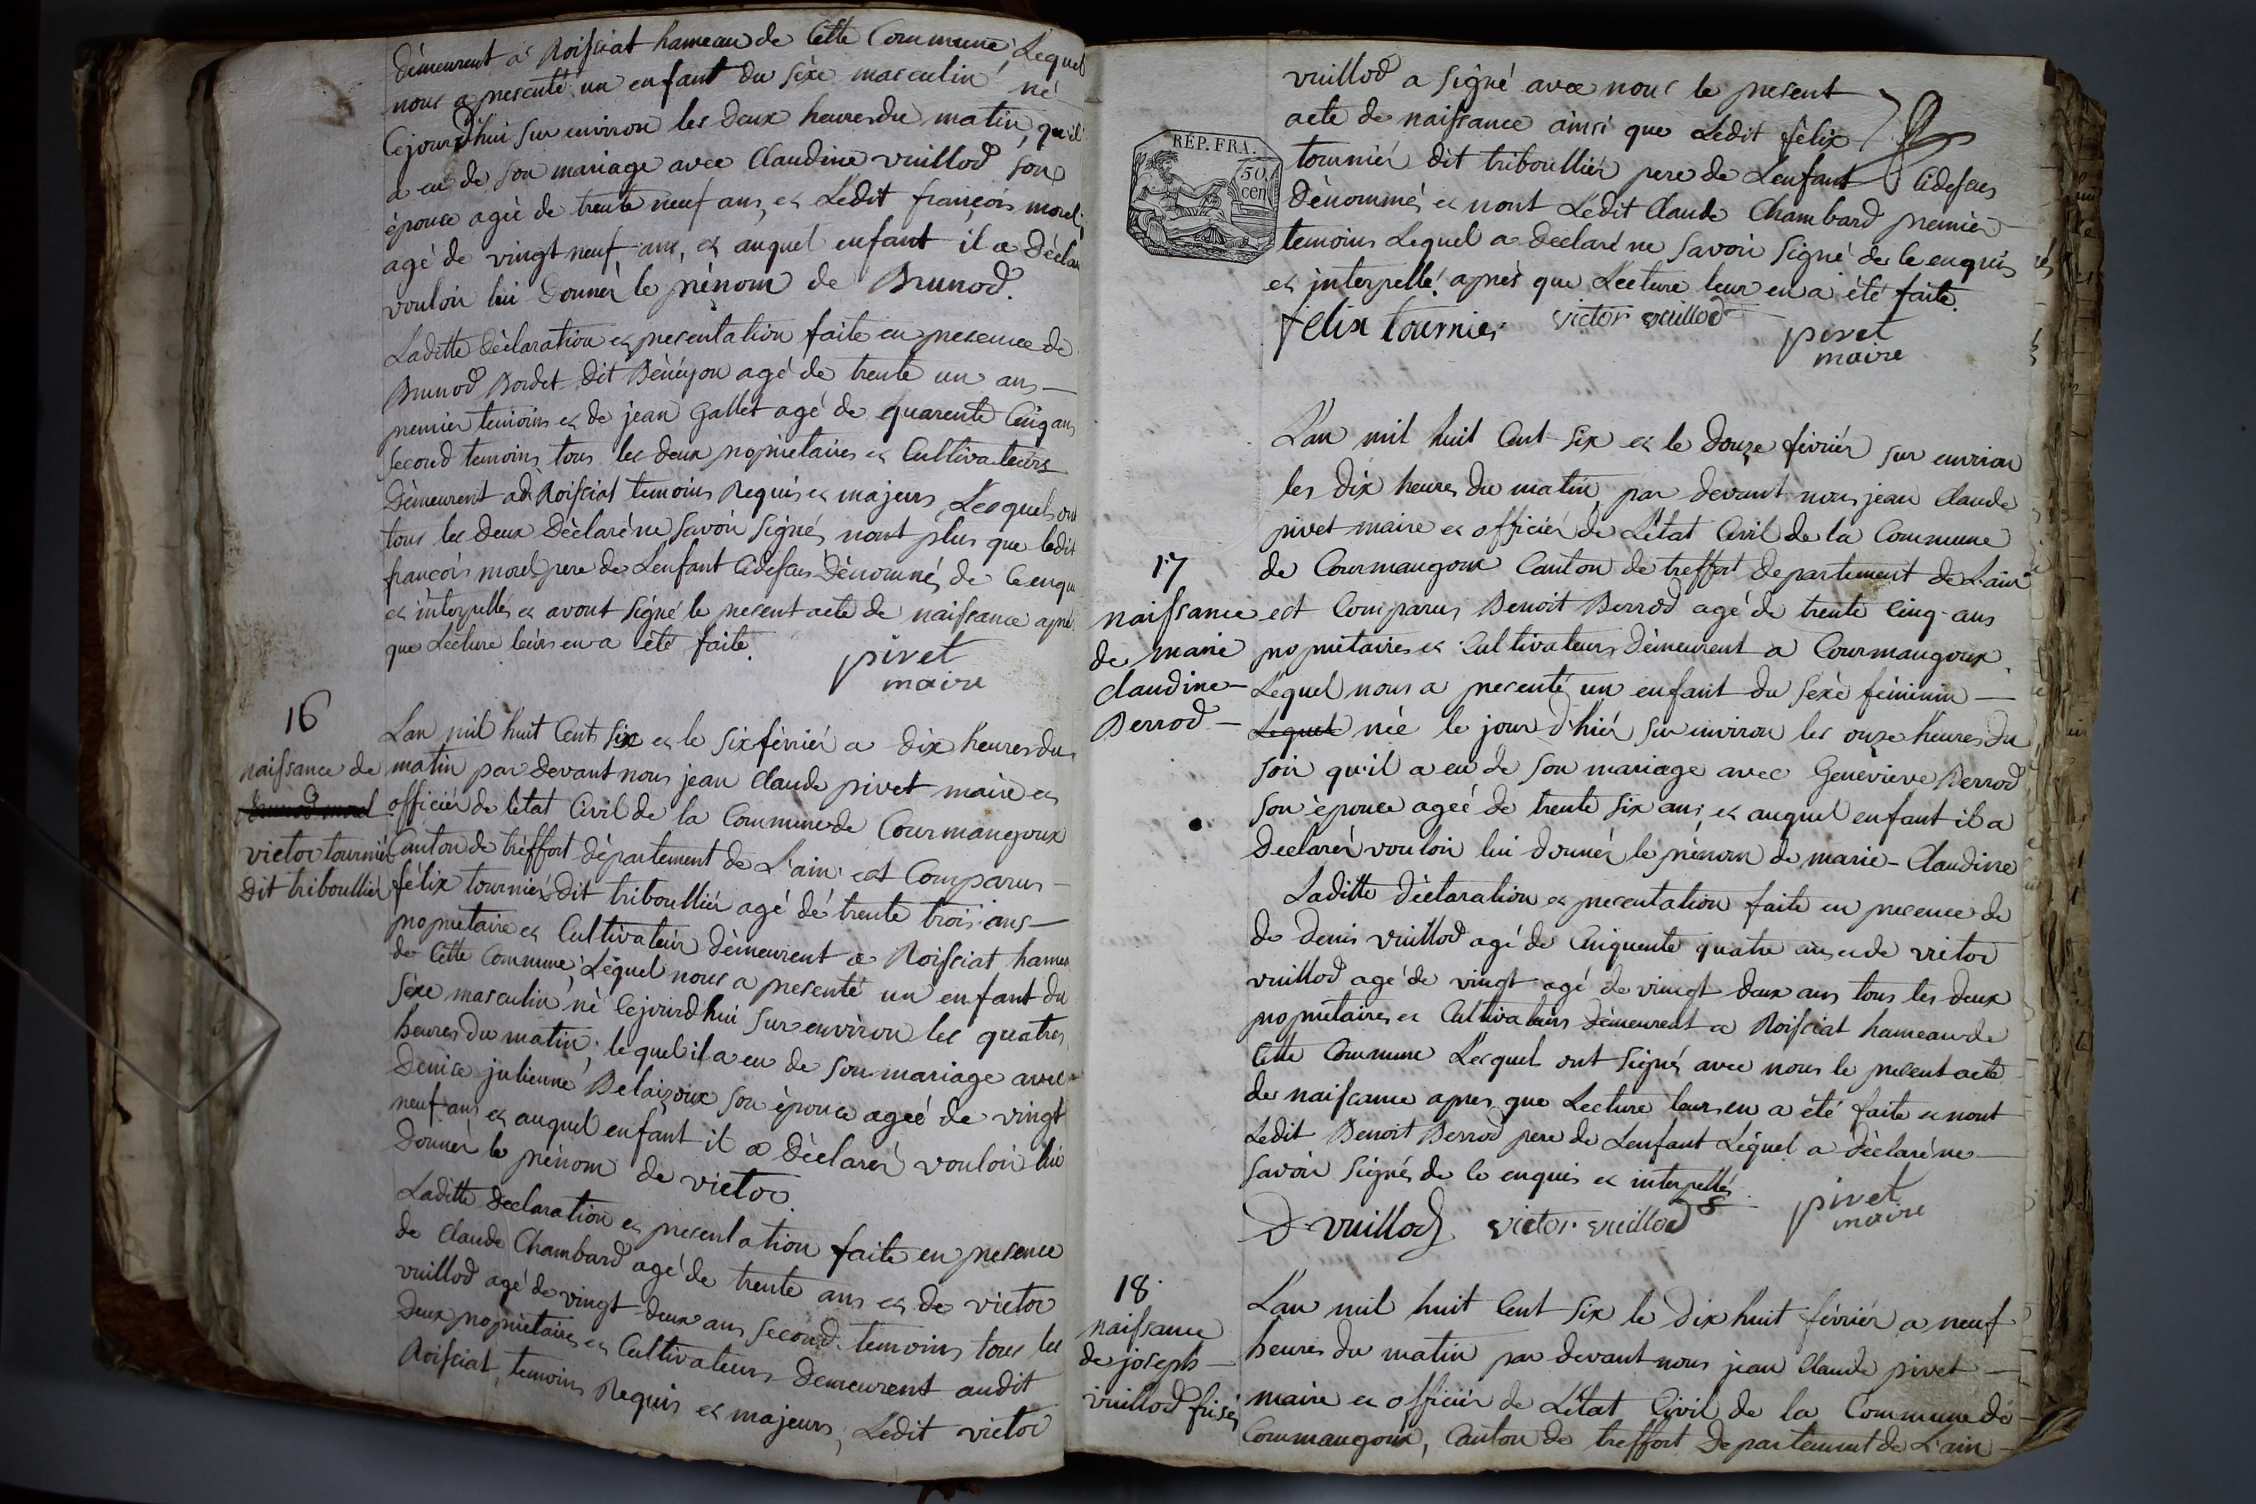 demeurent a Roissiat hameau de Cette Commune, Lequel
nous a presenté un enfant du sèxe masculin né
Cejourd'hui sur environ les deux heures du matin, qu'il
a eu de son mariage avec Claudine vuillod son
épouce agée de trente neuf ans, et Ledit françois morel,
agé de vingt neuf ans, et auquel enfant il a Déclaré
vouloir lui donner le prénom de Brunod.
Laditte Déclaration et presentation faite en presence de
Brunod Bordet dit Bénéyon agé de trente un ans
premier temoins et de jean Gallet agé de quarente Cinq ans
second temoins, tous les deux propriétaires et Cultivateurs
Demeurent ad Roissiat temoins Requis et majeurs, Lesquels ont
tous les deux Déclaré ne savoir signés, nont plus que ledit
françois morel pere de Lenfant Cidessus Dénommé, de Ce enquis
et interpellés et avont signé le present acte de naissance aprés
que Lecture leurs en a été faite.
pivet
maire
16
naissance de
victor tournier
Dit triboullier
Lan mil huit Cent six et le six février a dix heures du
matin par devant nous jean Claude pivet maire et
officier de l'état Civil de la Commune de Courmangoux
Canton de tréffort département de L'ain est Comparus
félix tournier Dit triboullier agé de trente trois ans
propriétaire et Cultivateur demeurent a Roissiat hameau
de Cette Commune, Léquel nous a presenté un enfant du
Sèxe masculin né Cejourdhui sur environ les quatres
heures du matin, lequel il a eu de son mariage avec
Denice julienne Belaizoux son épouce agée de vingt
neuf ans et auquel enfant il a Déclarer vouloir lui
Donner le prénom de victor.
Laditte Declaration et presentation faite en presence
de Claude Chambard agé de trente ans et de victor
vuillod agé de vingt deux ans second temoins tous les
Deux propriétaires et Cultivateurs Demeurent audit
Roissiat, temoins Requis et majeurs, Ledit victor
RÉP. FRA.
50
cen
vuillod a signé avec nous le present
acte de naissance ainsi que Ledit félix
tournier dit triboullier pere de Lenfant Cidessus
dénommés et nont Ledit Claude Chambard premier
temoins Lequel a declaré ne savoir signé de Ce enquis
et interpellé, aprés que Lecture leur en a été faite.
félix tournier victor vuillod
pivet
maire
17
naissance
de marie
claudine
Berrod
L'an mil huit Cent six et le douze février sur environ
les dix heures du matin par devant nous jean Claude
pivet maire et officier de L'état Civil de la Commune
de Courmangoux Canton de treffort departement de L'ain
est Comparus Benoit Berrod agé de trente Cinq ans
propriétaires et Cultivateurs Demeurent a Courmangoux
Lequel nous a presenté un enfant du sexe féminin
Lequel née le jour d'hiér sur environ les onze heures du
soir qu'il a eu de son mariage avec Genevieve Berrod
son épouce ageé de trente six ans et auquel enfant il a
Declarér vouloir lui donnér le prénom de marie-Claudine
Laditte Déclaration et presentation faite en presence de
de denis vuillod agé de Cinquente quatre ans et de victor
vuillod agé de vingt agé de vingt deux ans tous les deux
propriétaires et Cultivateurs Demeurent a Roissiat hameau de
Cette Commune Lesquel ont signés avec nous le present acte
de naissance apres que Lecture leurs en a été faite et nont
Ledit Benoit Berrod pere de Lenfant Léquel a Déclaré ne
savoir signés de Ce enquis et interpellés.
D vuillod victor vuillod
pivet
maire
18.
naissance
de joseph
vuillod frisé
L'an mil huit Cent six le dix huit février a neuf
heures du matin par devant nous jean Claude pivet
maire et officier de L'état Civil de la Commune de
Courmangoux, Canton de treffort Departement de L'ain